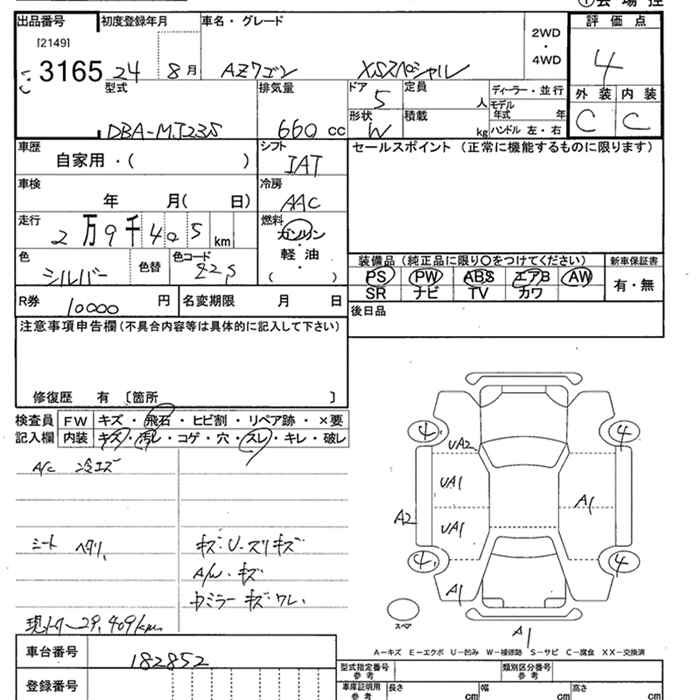 出品番号 初度登録年月 車名・グレード
[2149]
3165 24 8月 AZワゴン XSスペシャル
2WD
・
4WD
評価点
4
外装 内装
C C
型式 排気量 ドア 定員 ディーラー・並行
DBA-MJ23S 660cc 5 人
形状 積載 モデル年式 年
W kg ハンドル 左・右
車歴 シフト セールスポイント (正常に機能するものに限ります)
自家用・( ) IAT
車検 冷房
年 月( 日) AAC
走行 燃料
2万9千405km ガソリン
・
軽油
( )
色 色替 色コード
シルバー Z2S
装備品 (純正品に限り○をつけてください) 新車保証書
PS PW ABS エアB AW 有・無
SR ナビ TV カワ
R券 10000円 名変期限 月 日
後日品
注意事項申告欄(不具合内容等は具体的に記入して下さい)
修復歴 有 [箇所 ]
検査員 FW キズ・飛石・ヒビ割・リペア跡・×要
記入欄 内装 キズ・汚レ・コゲ・穴・スレ・キレ・破レ
A/C 冷エズ
シート ヘタリ、 キズ・U・スリキズ
A/W・キズ
ミラー キズ・ワレ、
29,409km
4 4
UA2
UA1
A1
A2
UA1
4 4
A1
スペア
A1
A-キズ E-エクボ U-凹み W-補修跡 S-サビ C-腐食 XX-交換済
車台番号 182852
型式指定番号 参考 類別区分番号 参考
登録番号
車庫証明用 参考 長さ cm 幅 cm 高さ cm